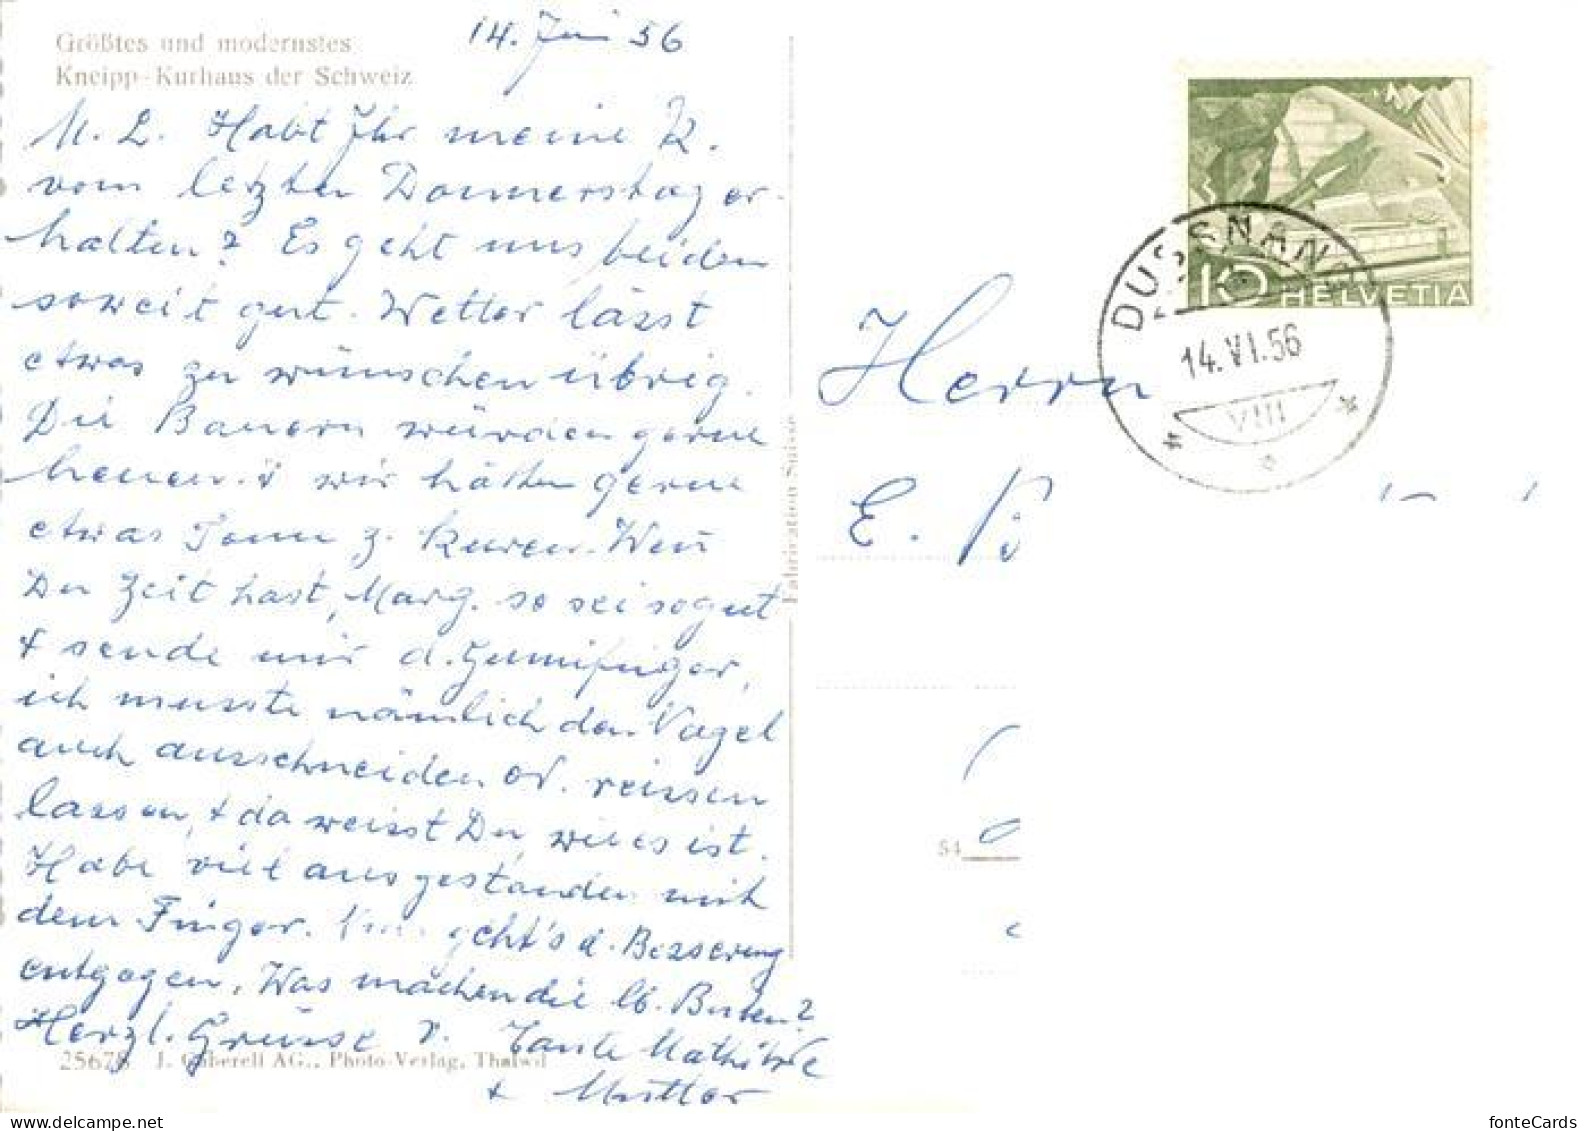 Größtes und modernstes
Kneipp-Kurhaus der Schweiz
14. Juni 56
M. L. Habt Ihr meine K.
vom letzten Donnerstag er-
halten? Es geht uns beiden
soweit gut. Wetter lässt
etwas zu wünschen übrig.
Die Bauern würden gerne
heuen & wir hätten gerne
etwas Sonne z. kuren. Wenn
Du Zeit hast, Marg. so sei so gut
& sende mir d. Gummifinger,
ich musste nämlich den Nagel
auch ausschneiden od. reissen
lassen, & da weisst Du, wie es ist.
Habe viel ausgestanden mit
dem Finger. geht's d. Besserung
entgegen. Was machen die lb. Buben?
Herzl. Grüsse v. Tante Mathilde
& Mutter
25678 J. Gaberell AG., Photo-Verlag, Thalwil
Fabrication Suisse
HELVETIA
10
DUSSNANG
14.VI.56
VIII
Herrn
E.
54
fonteCards